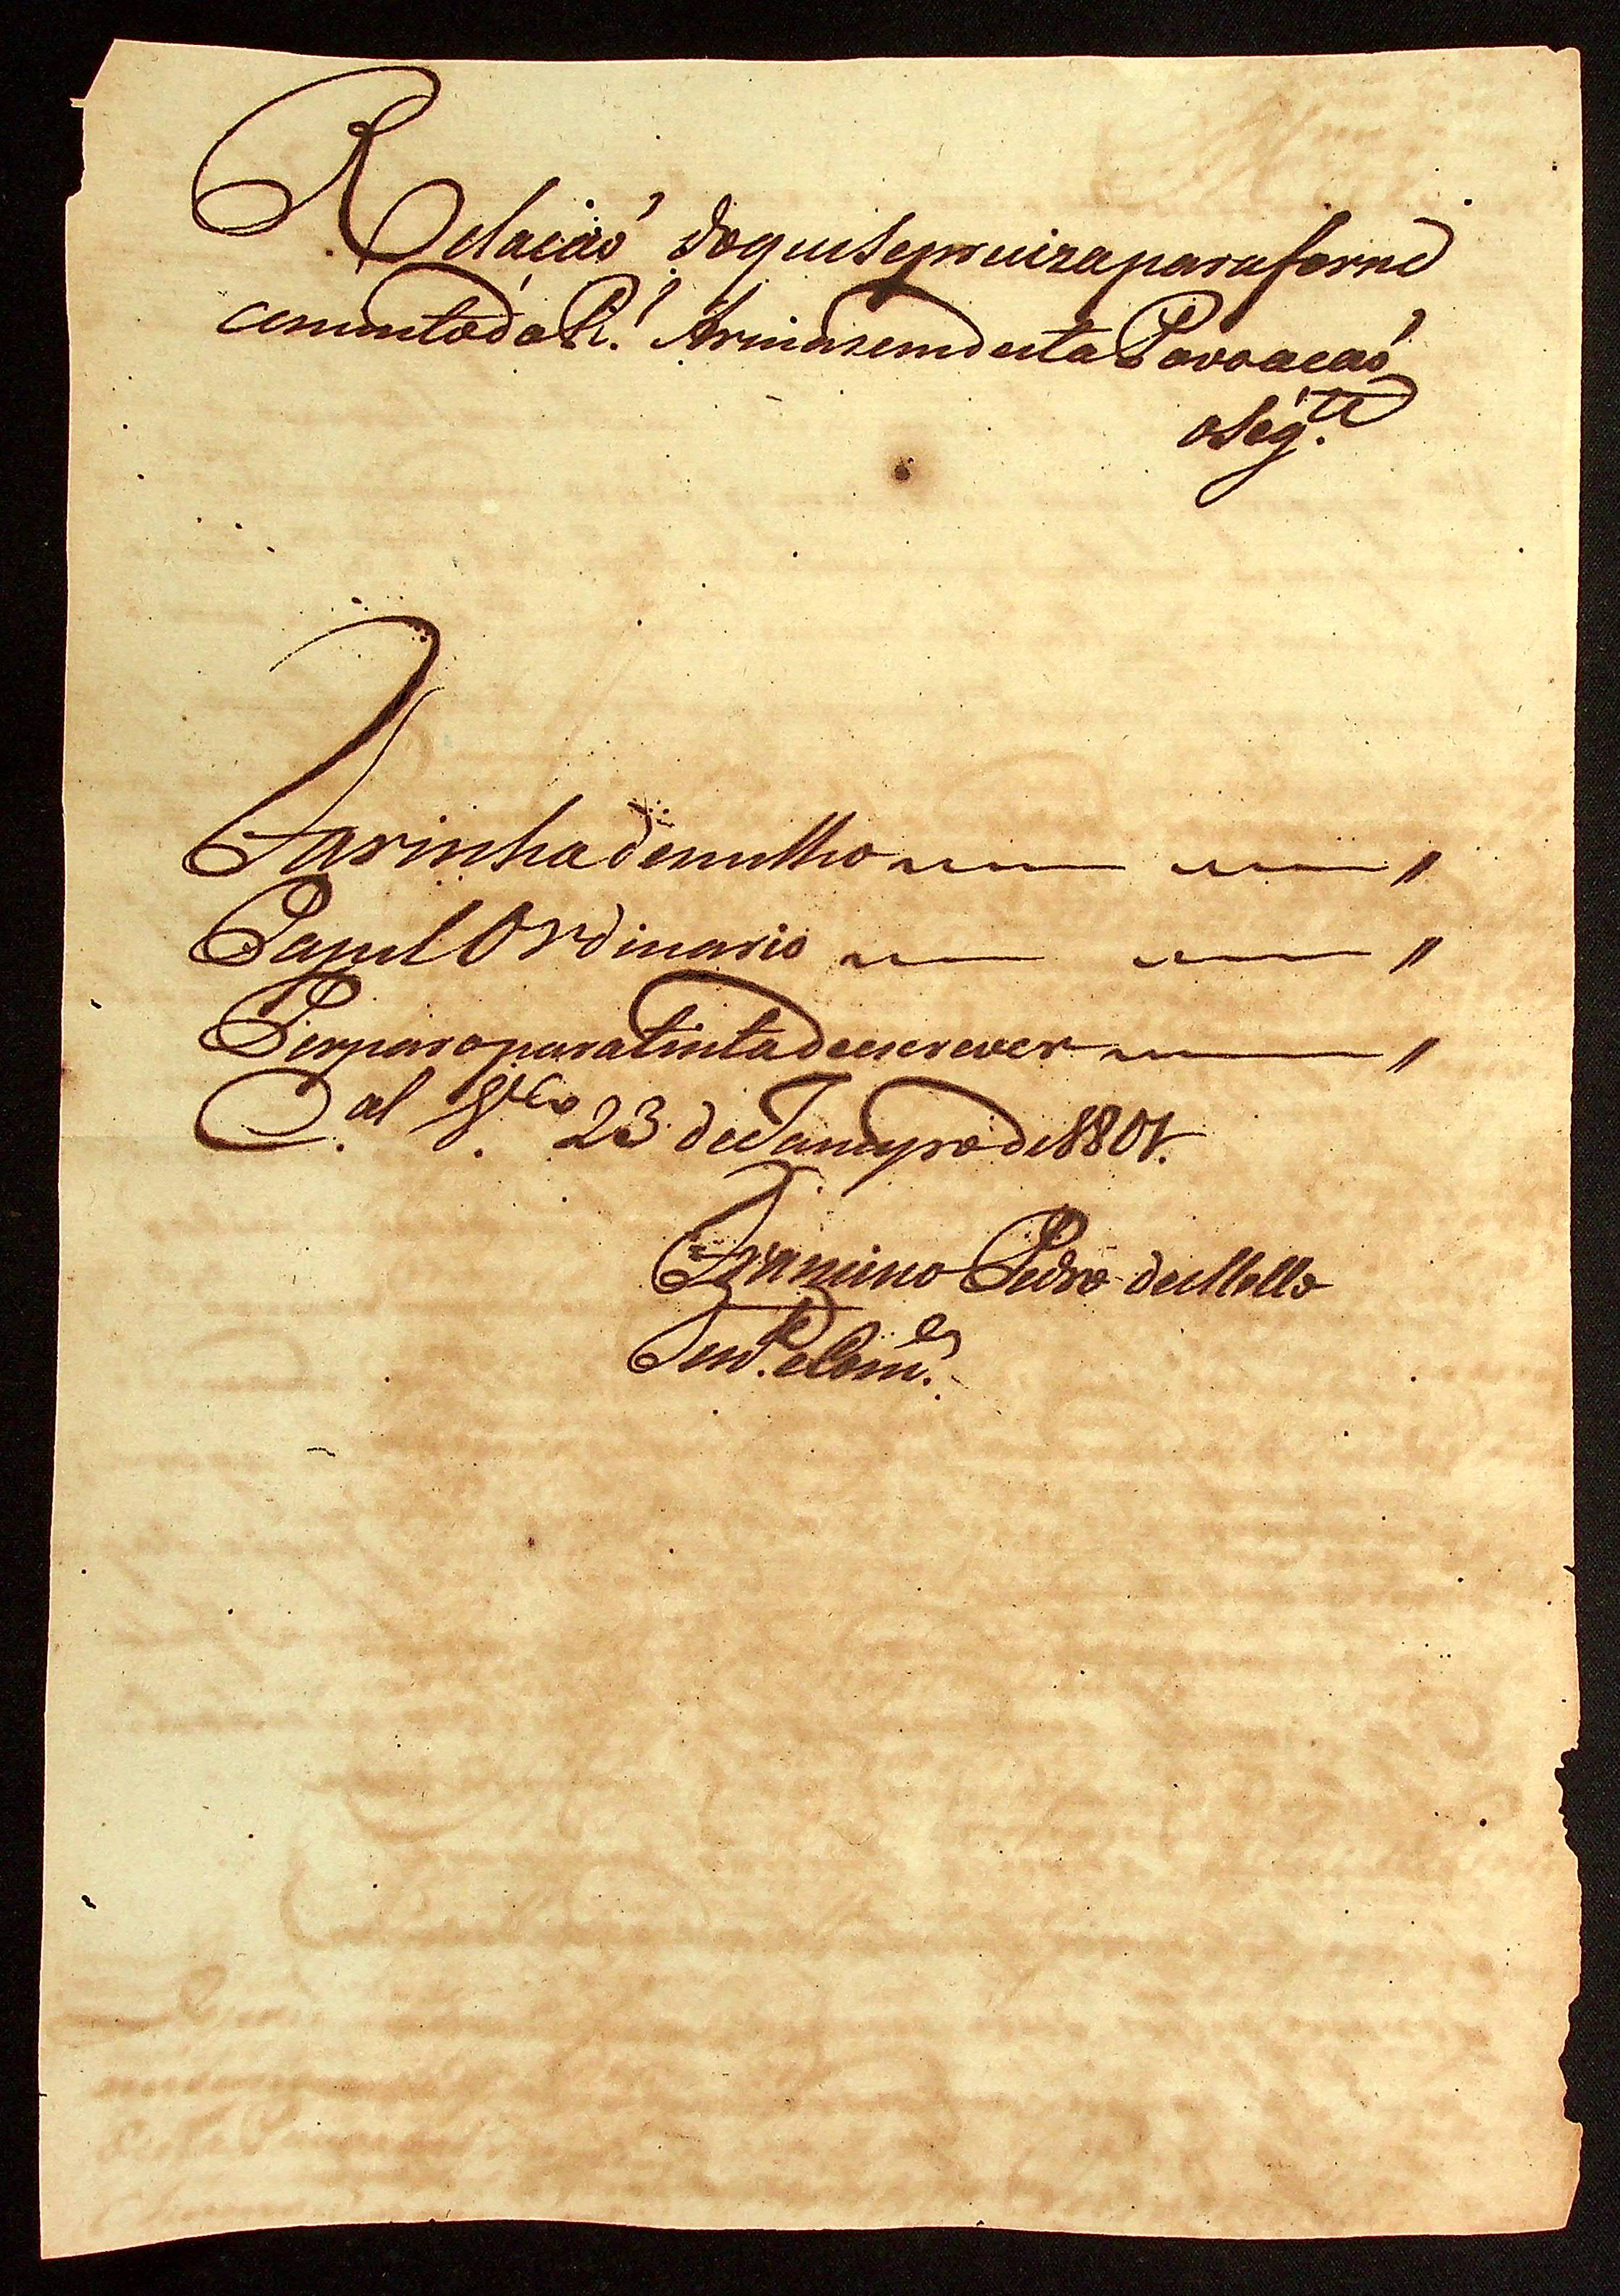 Relacaó doque sepreciza para forne
cimento da R.l Armasem desta Povoacaó
o Seg.te
Farinha de milho "
Papel Ordinario "
Perparo para tinta de escrever "
23 de Janeyro de 1801.
Francisco Pedro de Mello
Ten.te e Com.e